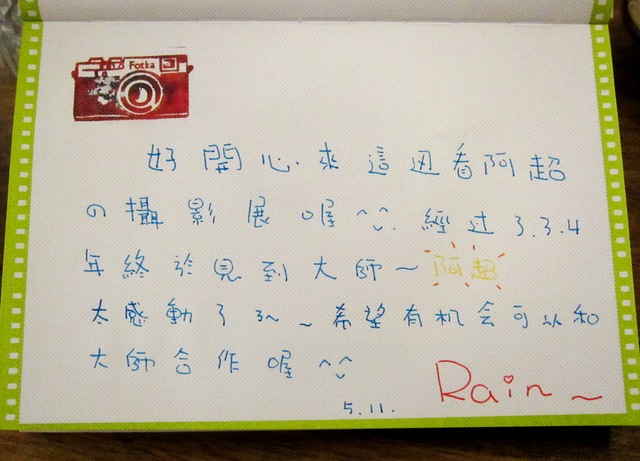 Fotka
好開心.來這边看阿超
の攝影展喔^^.經过3.3.4
年終於見到大師~阿超
太感動了ㄋㄟ~希望有机会可以和
大師合作喔^^
5.11.
Rain~